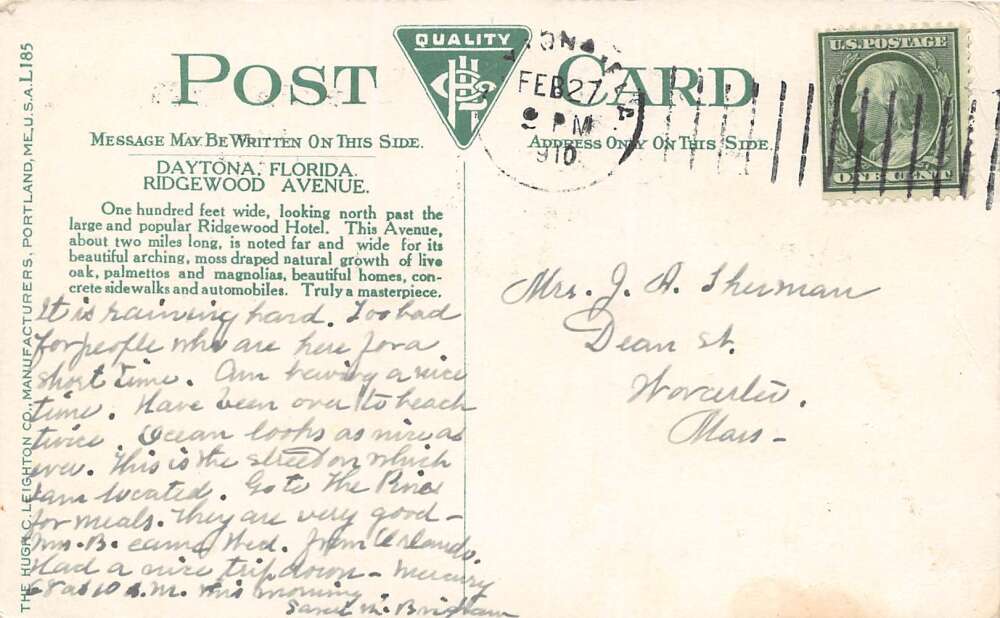 POST CARD
QUALITY
MESSAGE MAY BE WRITTEN ON THIS SIDE.
ADDRESS ONLY ON THIS SIDE.
FEB 27
PM
910
U.S. POSTAGE
ONE CENT
THE HUGH C. LEIGHTON CO., MANUFACTURERS, PORTLAND, ME., U.S.A. L185
DAYTONA, FLORIDA.
RIDGEWOOD AVENUE.
One hundred feet wide, looking north past the
large and popular Ridgewood Hotel. This Avenue,
about two miles long, is noted far and wide for its
beautiful arching, moss draped natural growth of live
oak, palmettos and magnolias, beautiful homes, con-
crete sidewalks and automobiles. Truly a masterpiece.
It is raining hard. Too bad
for people who are here for a
short time. Am having a nice
time. Have been over to beach
twice. Ocean looks as nice as
ever. This is the street on which
I am located. Go to The Pines
for meals. They are very good –
Mrs. B. came Wed. from Orlando.
Had a nice trip down – Mercury
68 at 10 A.M. this morning
Sarah M. Brigham
Mrs. J. A. Sherman
Dean St.
Worcester,
Mass –